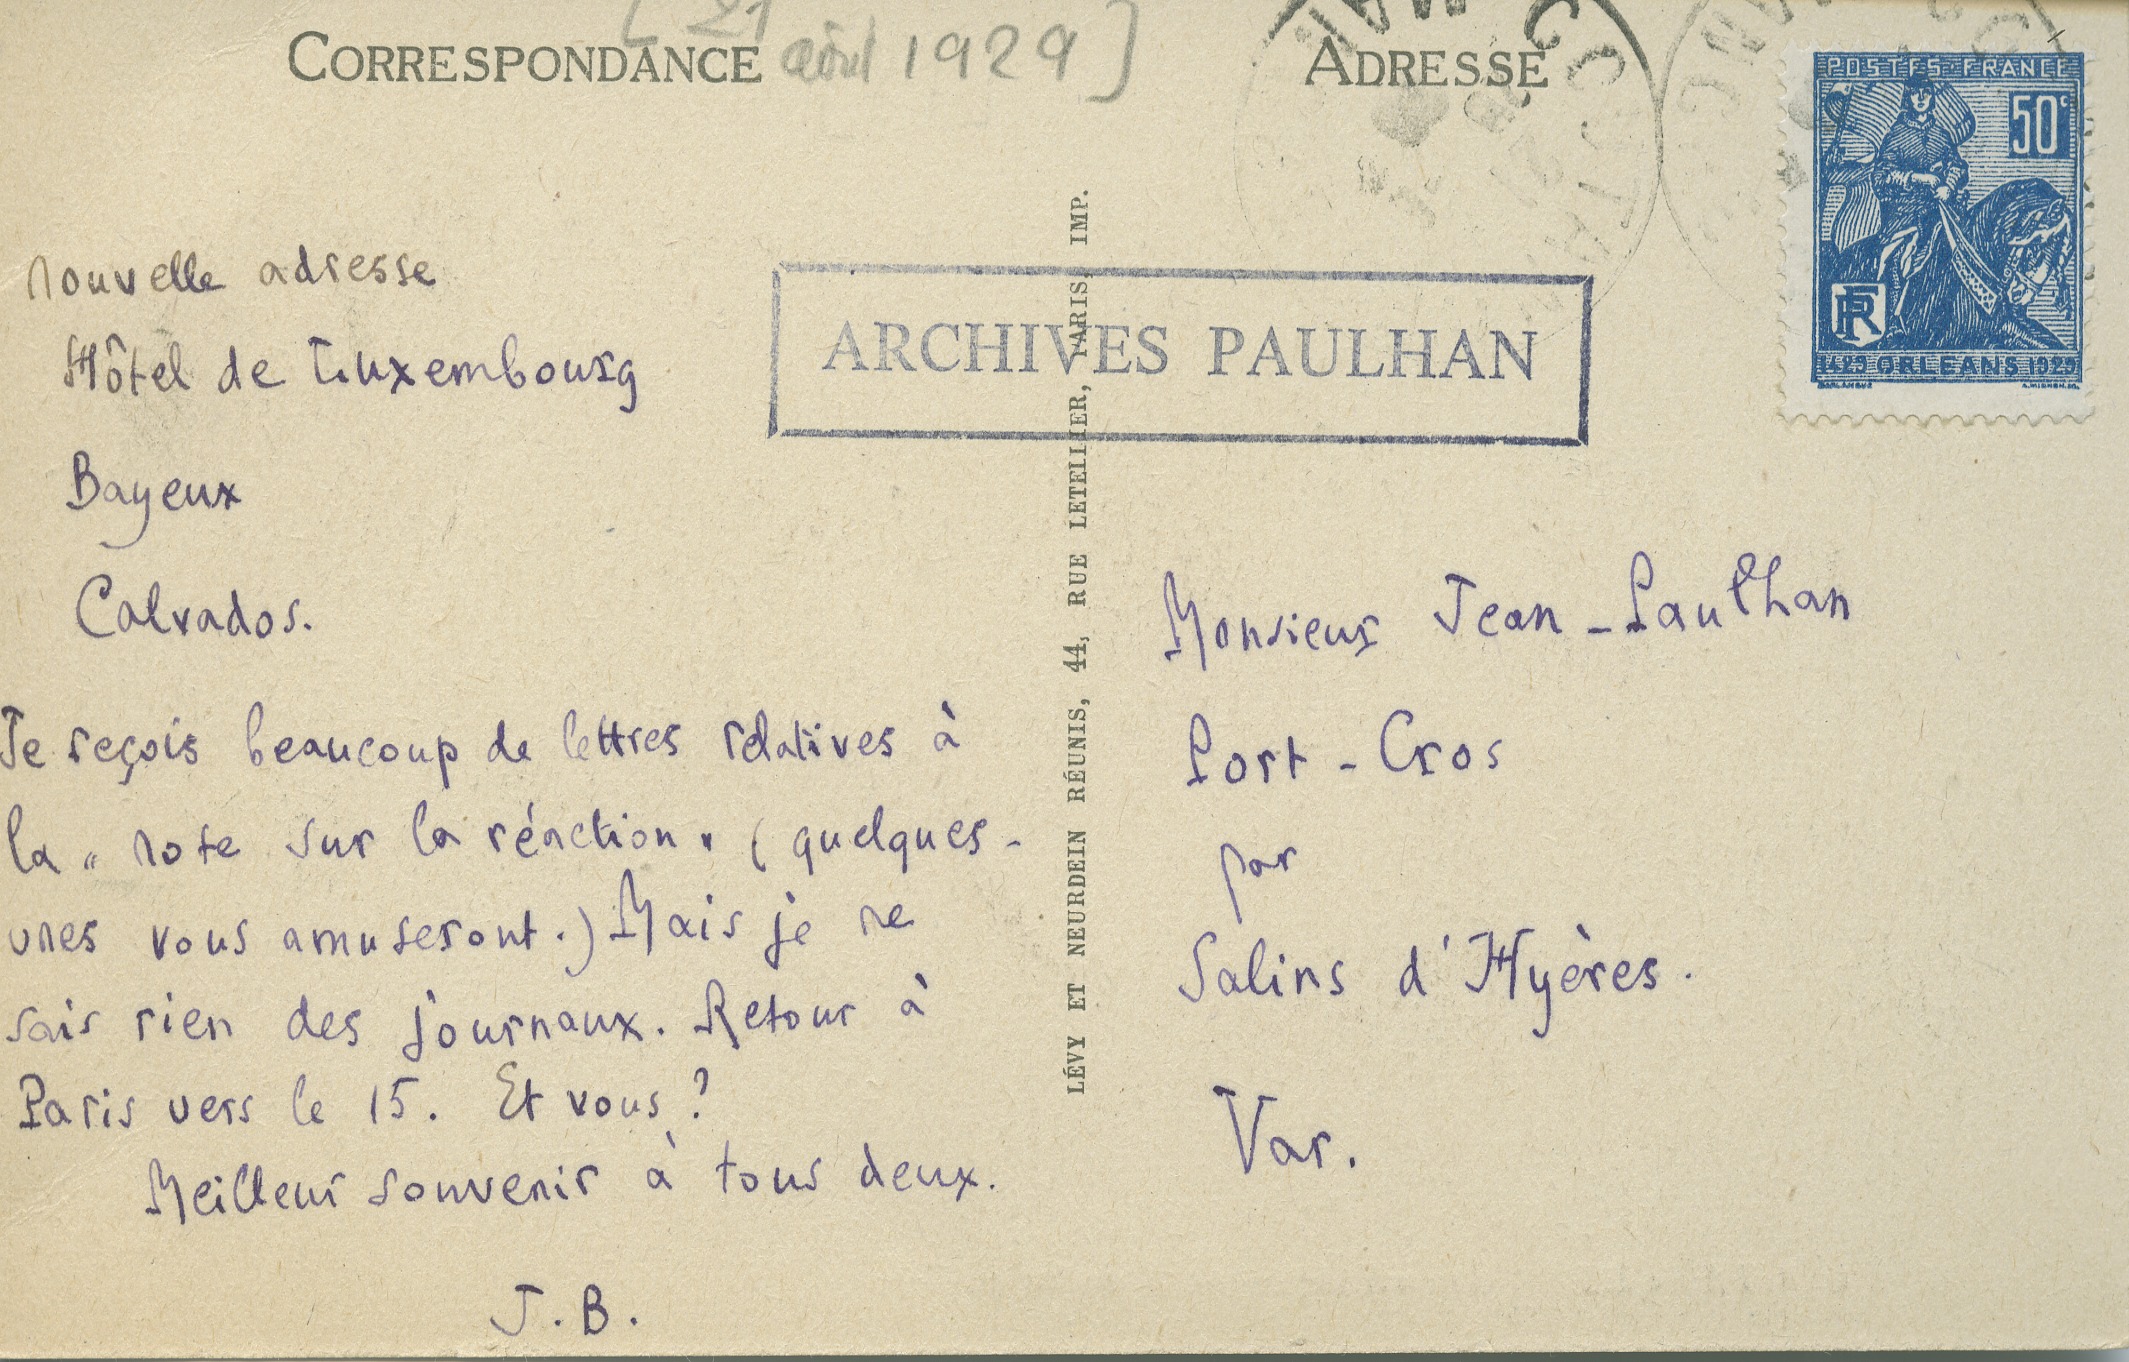 CORRESPONDANCE
[21 août 1929]
ADRESSE
POSTES-FRANCE
50c
RF
1429 ORLEANS 1929
ARCHIVES PAULHAN
LÉVY ET NEURDEIN RÉUNIS, 44, RUE LETELLIER, PARIS, IMP.
nouvelle adresse
Hôtel de Luxembourg
Bayeux
Calvados.
Je reçois beaucoup de lettres relatives à
la " note sur la réaction " (quelques-
unes vous amuseront.) Mais je ne
sais rien des journaux. Retour à
Paris vers le 15. Et vous ?
Meilleur souvenir à tous deux.
J. B.
Monsieur Jean-Paulhan
Port-Cros
par
Salins d'Hyères.
Var.